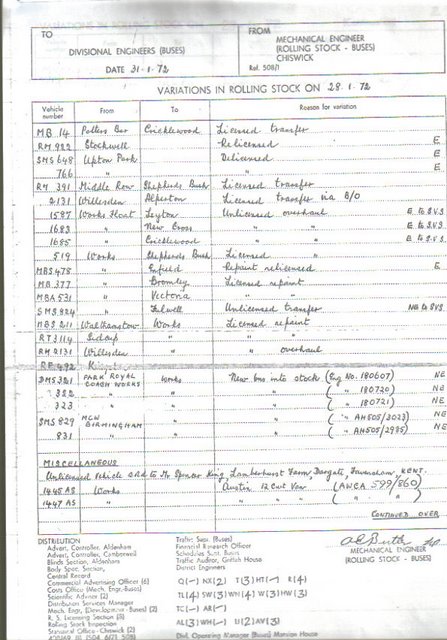 TO
DIVISIONAL ENGINEERS (BUSES)
DATE 31-1-72
FROM
MECHANICAL ENGINEER
(ROLLING STOCK - BUSES)
CHISWICK
Ref. 508/1
VARIATIONS IN ROLLING STOCK ON 28.1.72
Vehicle number From To Reason for variation
MB 14 Potters Bar Cricklewood Licensed transfer
RM 922 Stockwell Relicensed E
SMS 648 Upton Park Delicensed E
766 " " E
RM 391 Middle Row Shepherds Bush Licensed transfer
2131 Willesden Alperton Licensed transfer via B/O
1587 Works Float Leyton Unlicensed overhaul E to SVS
1683 " New Cross " " E to SVS
1685 " Cricklewood " " E to SVS
519 Works Shepherds Bush Licensed "
MBS 478 " Enfield Repaint relicensed E
MB 377 " Bromley Licensed repaint
MBA 531 " Victoria " "
SMS 824 " Fulwell Unlicensed transfer NE to SVS
MBS 211 Walthamstow Works Licensed repaint
RT 3114 Sidcup " "
RM 2131 Willesden " " overhaul
RF 492
DMS 321 PARK ROYAL COACH WORKS Works New bus into stock (Eng No. 180607) NE
322 " " " ( " 180720) NE
323 " " " ( " 180721) NE
SMS 829 MCW BIRMINGHAM " " ( " AH505/3023) NE
831 " " " ( " AH505/2985) NE
MISCELLANEOUS
Unlicensed vehicle sold to Mr Spencer King, Lamberhurst Farm, Dargate, Faversham, KENT.
1445 AS Works Austin 12 Cwt Van (ANCA 599/860)
1447 AS " " ( " " )
CONTINUED OVER
MECHANICAL ENGINEER
(ROLLING STOCK - BUSES)
DISTRIBUTION
Advert. Controller, Aldenham
Advert. Controller, Camberwell
Blinds Section, Aldenham
Body Spec. Section,
Central Record
Commercial Advertising Officer (6)
Costs Office (Mech. Engr.-Buses)
Scientific Adviser (2)
Distribution Services Manager
Mech. Engr. (Development - Buses) (2)
R. S. Licensing Section (3)
Rolling Stock Inspection
Statistical Office - Chiswick (2)
Traffic Supt. (Buses)
Financial Research Officer
Schedules Supt. Buses
Traffic Auditor, Griffith House
District Engineers
Q(-) NX(2) T(3) HT(-) R(4)
TL(4) SW(3) WN(4) W(3) HW(3)
TC(-) AR(-)
AL(3) WH(-) U(2) AV(3)
Divl. Operating Manager (Buses) Mansion House